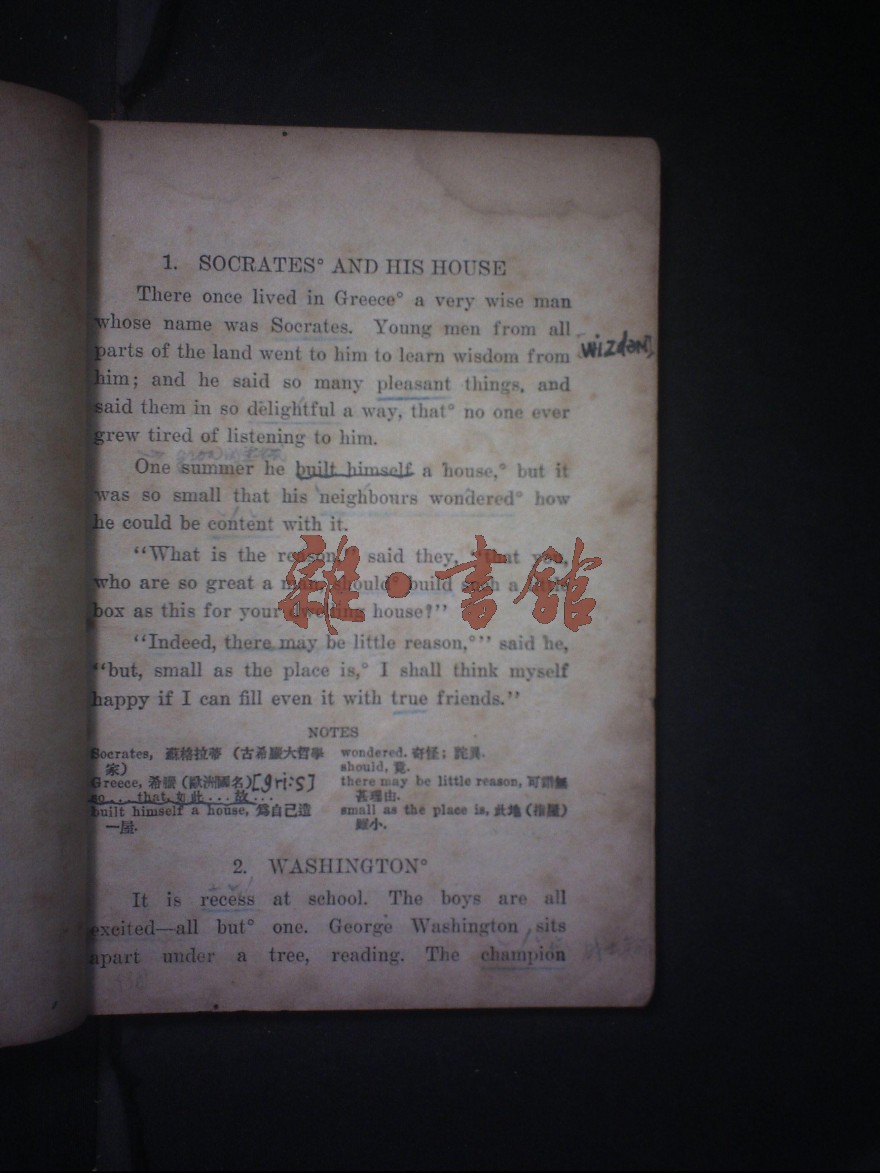 1. SOCRATES° AND HIS HOUSE
There once lived in Greece° a very wise man
whose name was Socrates. Young men from all
parts of the land went to him to learn wisdom from
wizdən]
him; and he said so many pleasant things, and
said them in so delightful a way, that° no one ever
grew tired of listening to him.
One summer he built himself a house,° but it
was so small that his neighbours wondered° how
he could be content with it.
"What is the reason," said they, "that you,
who are so great a man, should° build such a little
box as this for your dwelling house?"
"Indeed, there may be little reason,°" said he,
"but, small as the place is,° I shall think myself
happy if I can fill even it with true friends."
雜·書館
NOTES
Socrates, 蘇格拉蒂 (古希臘大哲學
家)
Greece, 希臘 (歐洲國名) [gri:s]
so . . . that, 如此 . . . 故 . . .
built himself a house, 爲自己造
一屋.
wondered, 奇怪; 詫異.
should, 竟.
there may be little reason, 可謂無
甚理由.
small as the place is, 此地 (指屋)
雖小.
2. WASHINGTON°
It is recess at school. The boys are all
excited—all but° one. George Washington sits
apart under a tree, reading. The champion